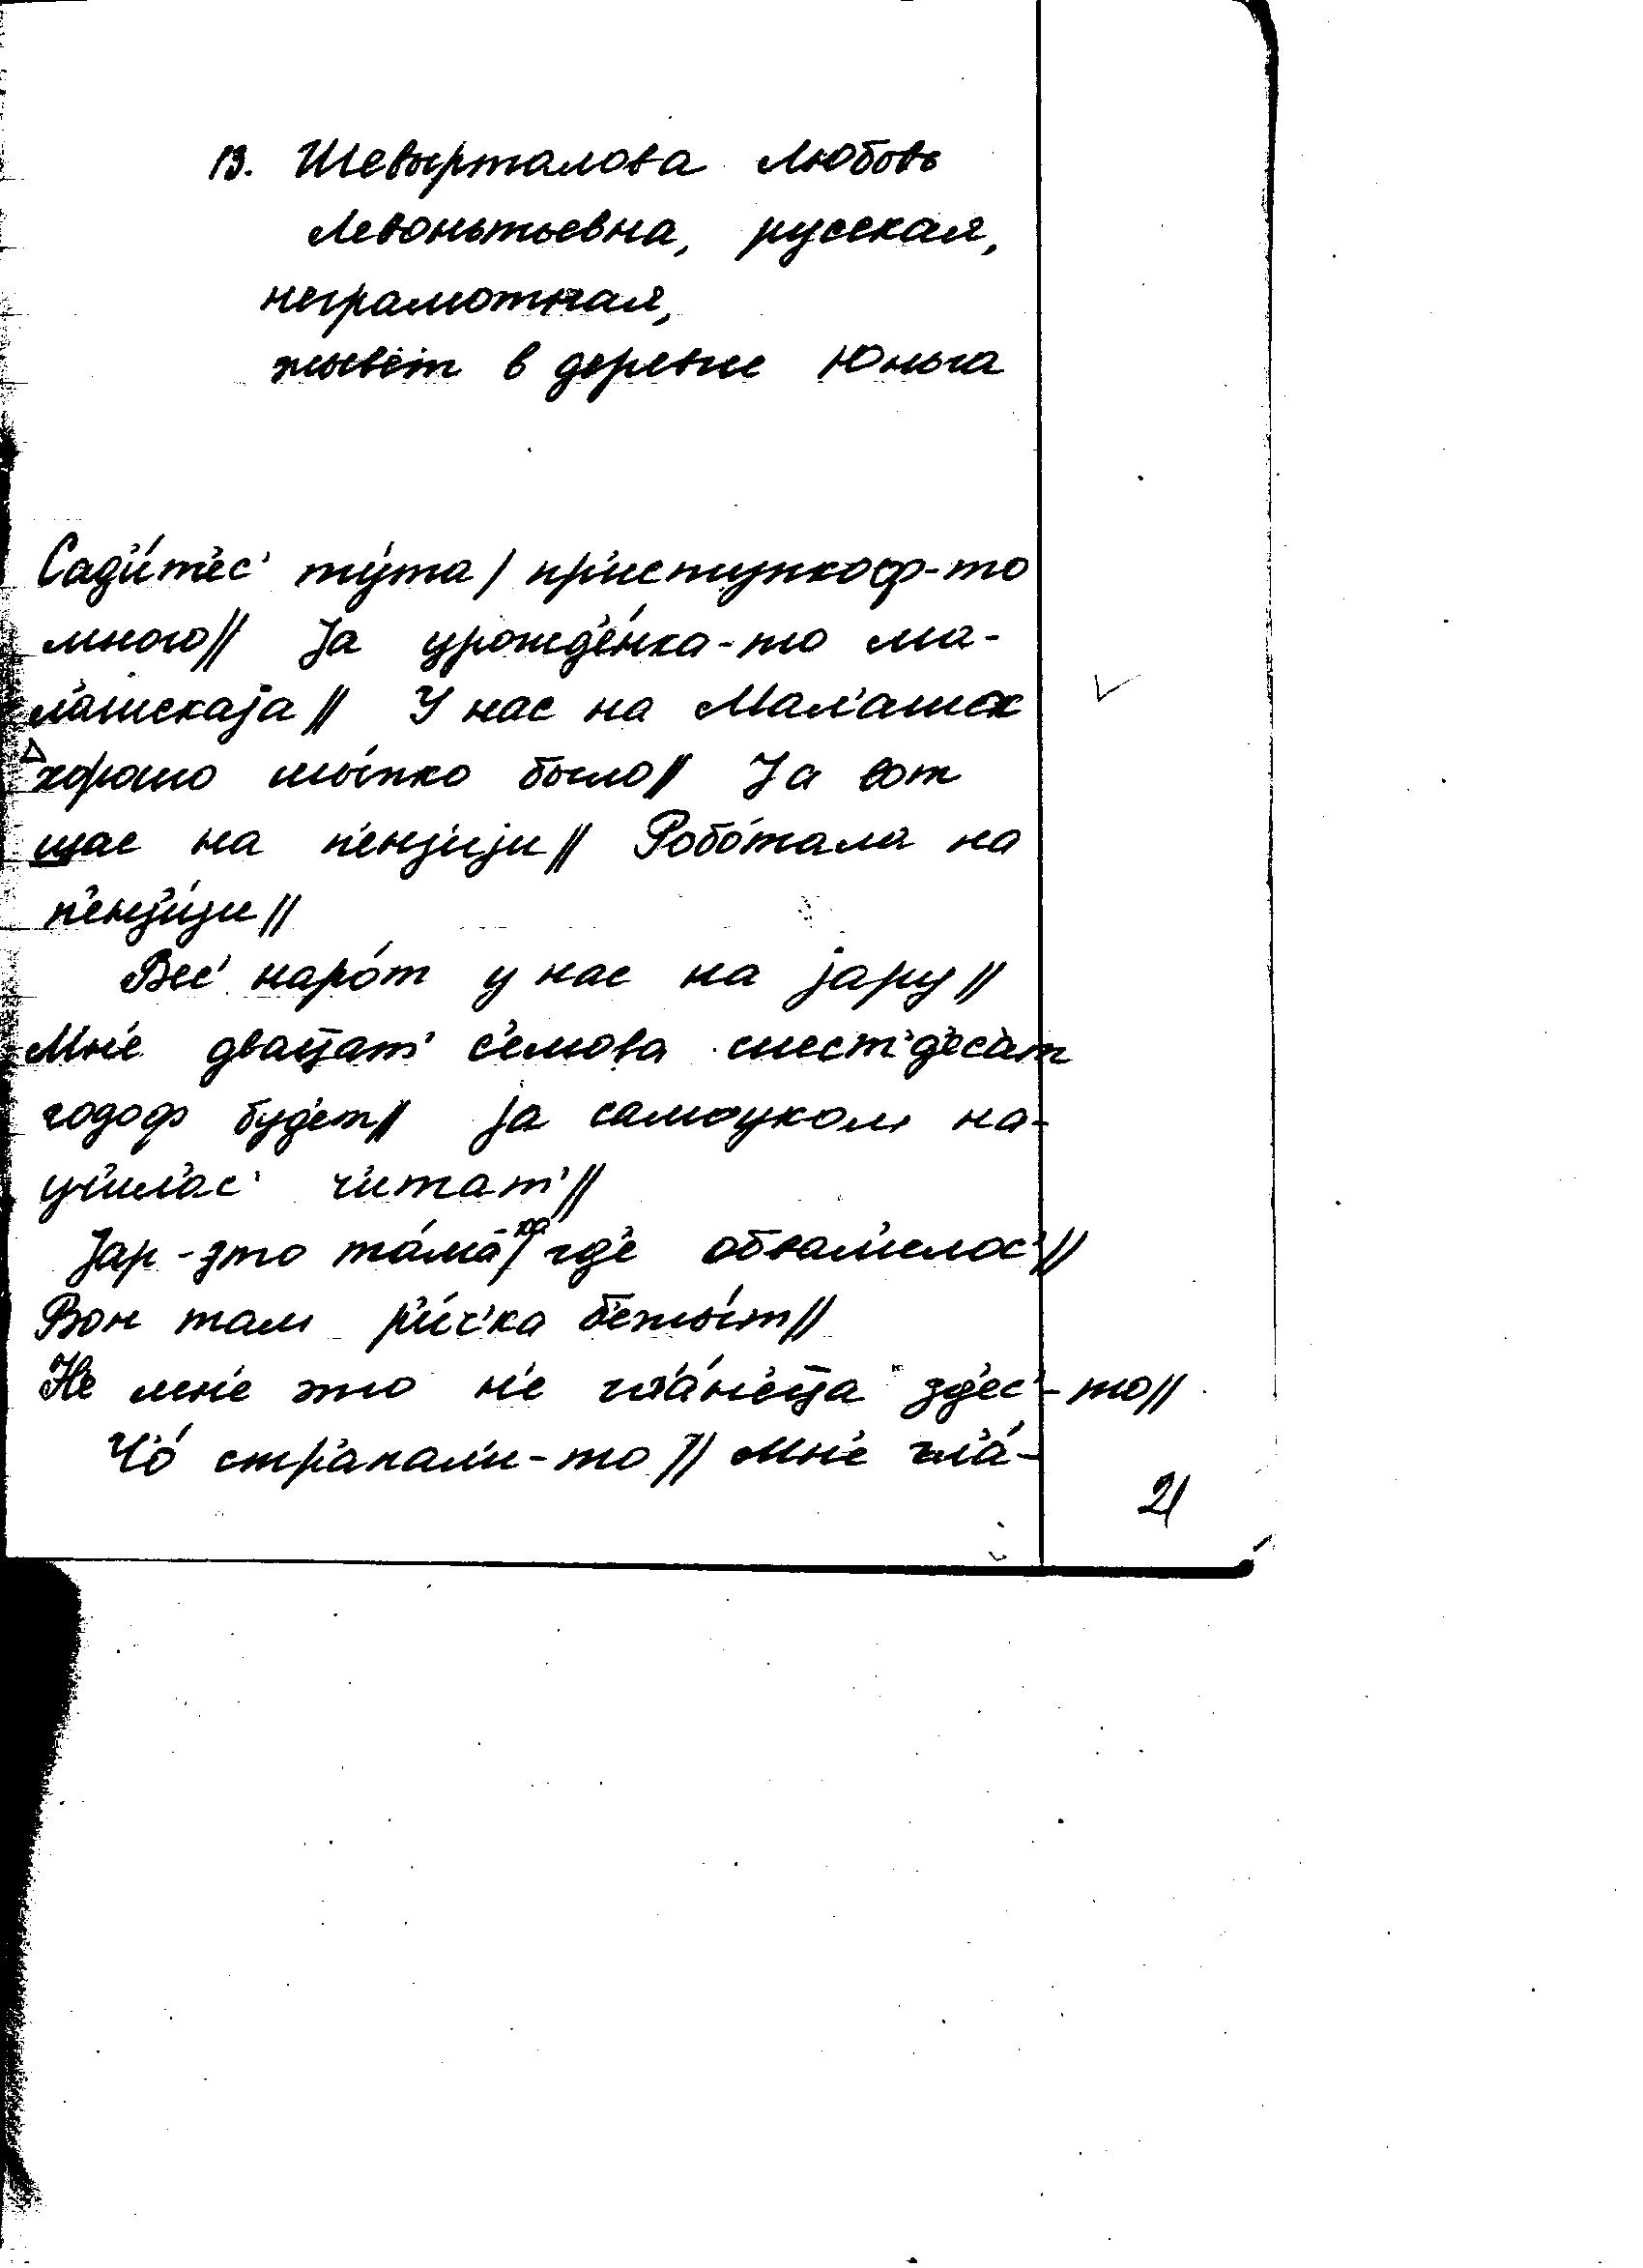 13. Шевырталова Любовь
Левонтьевна, русская,
неграмотная,
живёт в деревне Юньга
Сад'и́т'ес' ту́та / пр'иступкоф-то
много // Jа урожд'е́нка-то ма-
л'а́шскаjа // У нас на Мал'ашах
хорошо шы́пко было // Jа вот
щас на п'енз'иjи // Робо́тала на
п'енз'и́jи //
Вес' наро́т у нас на jару //
Мн'е двацат' с'емова шест'д'ес'ат
годоф буд'ет // jа самоуком на-
уч'илас' ч'итат' //
Jар - это та́ма-ка / гд'е обвал'илос' //
Вон там р'и́ч'ка б'ежы́т //
Н'е мн'е это н'е гл'а́н'еца зд'ес'-то //
Ч'о́ стр'апал'и-то // Мн'е гл'а́-
21